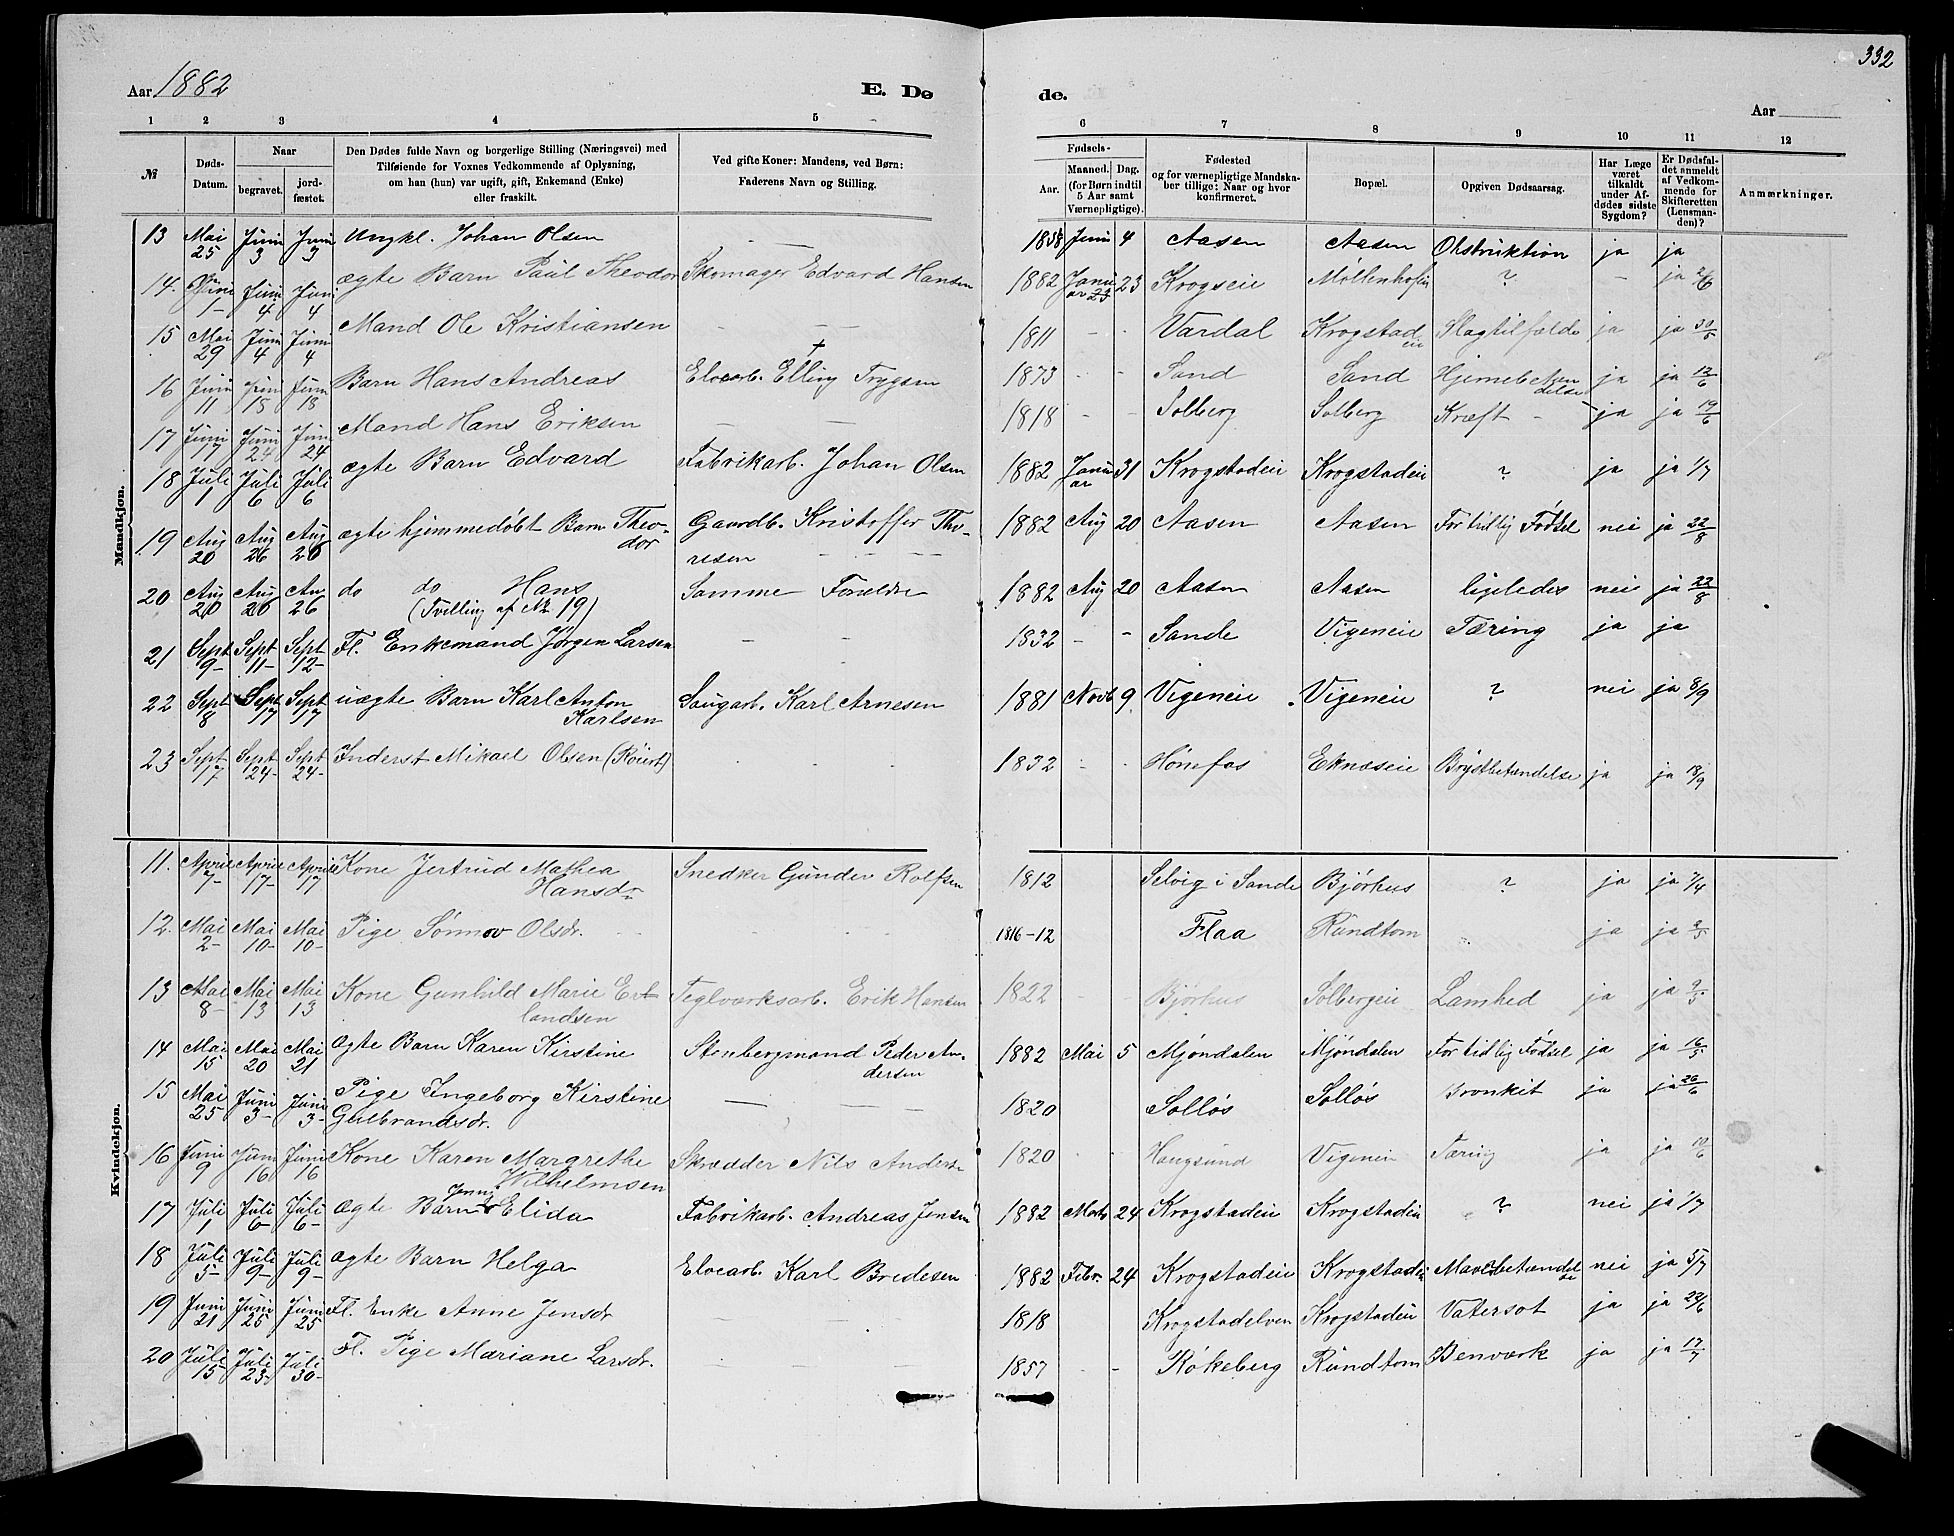 332
Aar 1882
E. Dø
de.
Aar
1 2 3 4 5 6 7 8 9 10 11 12
№
Døds-Datum.
Naar
begravet.
jord-fæstet.
Den Dødes fulde Navn og borgerlige Stilling (Næringsvei) med
Tilføiende for Voxnes Vedkommende af Oplysning,
om han (hun) var ugift, gift, Enkemand (Enke)
eller fraskilt.
Ved gifte Koner: Mandens, ved Børn:
Faderens Navn og Stilling.
Fødsels-
Aar. Maaned. Dag.
(for Børn indtil
5 Aar samt
Værnepligtige).
Fødested
og for værnepligtige Mandska-
ber tillige: Naar og hvor
konfirmeret.
Bopæl.
Opgiven Dødsaarsag.
Har Læge
været
tilkaldt
under Af-
dødes sidste
Sygdom?
Er Dødsfal-
det anmeldt
af Vedkom-
mende for
Skifteretten
(Lensman-
den)?
Anmærkninger.
Mandkjøn.
13 Mai 25 Juni 3 Juni 3 Ungkl. Johan Olsen — 1858 Juni 4 Aasen Aasen Obstruktion ja ja
14 Juni 1- Juni 4 Juni 4 ægte Barn Paul Theodor Skomager Edvard Hansen 1882 Januar 23 23 Krogseie Møllenhofen ? - ja 2/6
15 Mai 29 Juni 4 Juni 4 Mand Ole Kristiansen - - 1811 - - Vardal Krogstadeie Slagtilfælde ja ja 30/5
16 Juni 11 Juni 18 Juni 18 Barn Hans Andreas Elvearb. Elling Trygsen † 1873 - - Sand Sand Hjernebetændelse ja ja 12/6
17 Juni 17 Juni 24 Juni 24 Mand Hans Eriksen - - 1818 - - Solberg Solberg Kræft - ja ja 19/6
18 Juli 1 Juli 6 Juli 6 ægte Barn Edvard Fabrikarb. Johan Olsen 1882 Januar 31 Krogstadeie Krogstadeie ? ja ja 1/7
19 Aug 20 Aug 26 Aug 26 ægte hjemmedøbt Barn Theo-
dor Gaardb. Kristoffer Tho-
resen 1882 Aug 20 Aasen Aasen For tidlig Fødsel nei ja 22/8
20 Aug 20 Aug 26 Aug 26 do do Hans
(Tvilling af № 19) Samme Foreldre 1882 Aug 20 Aasen Aasen ligeledes nei ja 22/8
21 Sept 9- Sept 11- Sept 12- Fl. Enkemand Jørgen Larsen - - 1832 - - Sande Vigeneie Tæring ja ja
22 Sept 8 Sept 17 Sept 17 uægte Barn Karl Anton
Karlsen Saugarb. Karl Arnesen 1881 Novb 9 Vigeneie Vigeneie ? nei ja 8/9
23 Sept 17 Sept 24- Sept 24- Inderst Mikael Olsen 1832 - - Hønefos Eknæseie Brystbetændelse ja ja 18/9
Kvindekjøn.
11. April 7- April 17- April 17 Kone Jertrud Mathea
Hansdr. Snedker Gunder Rolfsen 1812 Selvig i Sande Bjørhus ? ja ja 7/4
12. Mai 2- Mai 10- Mai 10- Pige Sønnøv Olsdr. - - 1816-12 Flaa Rundtom ja ja 2/5
13 Mai 8- Mai 13 Mai 13 Kone Gunhild Marie Ert
landsen Teglværksarb. Erik Hansen 1822 - - Bjørhus Solbergeie Lamhed ja ja 9/5
14 Mai 15 Mai 20 Mai 21 ægte Barn Karen Kirstine Stenbergmand Peder An-
dersen 1882 Mai 5 Mjøndalen Mjøndalen For tidlig Fødsel ja ja 16/5
15 Mai 25 Juni 3- Juni 3- Pige Ingeborg Kirstine
Gulbrandsdr. — - 1820 Solløs Solløs Bronkit ja ja 26/6
16 Juni 9 Juni 16 Juni 16 Kone Karen Margrethe
Vilhelmsen Skrædder Nils Anders 1820 - - Haugsund Vigeneie Tæring ja ja 10/6
17 Juli 1 Juli 6- Juli 6- ægte Barn Jenny Elida Fabrikarb. Andreas Jensen 1882 Marts 24 Krogstadeie Krogstadeie ? nei ja 1/7
18 Juli 5- Juli 9- Juli 9- ægte Barn Helga Elvearb. Karl Bredesen 1882 Febr. 24 Krogstadeie Krogstadeie Mavebetændelse nei ja 5/7
19 Juni 21 Juni 25 Juni 25 Fl. Enke Anne Jensdr - - 1818 Krogstadelven Krogstadeie Vatersot ja ja 22/6
20 Juli 15- Juli 23- Juli 30- Fl. Pige Mariane Larsdr. 1857 - Røkeberg Rundtom Benværk ja ja 17/7